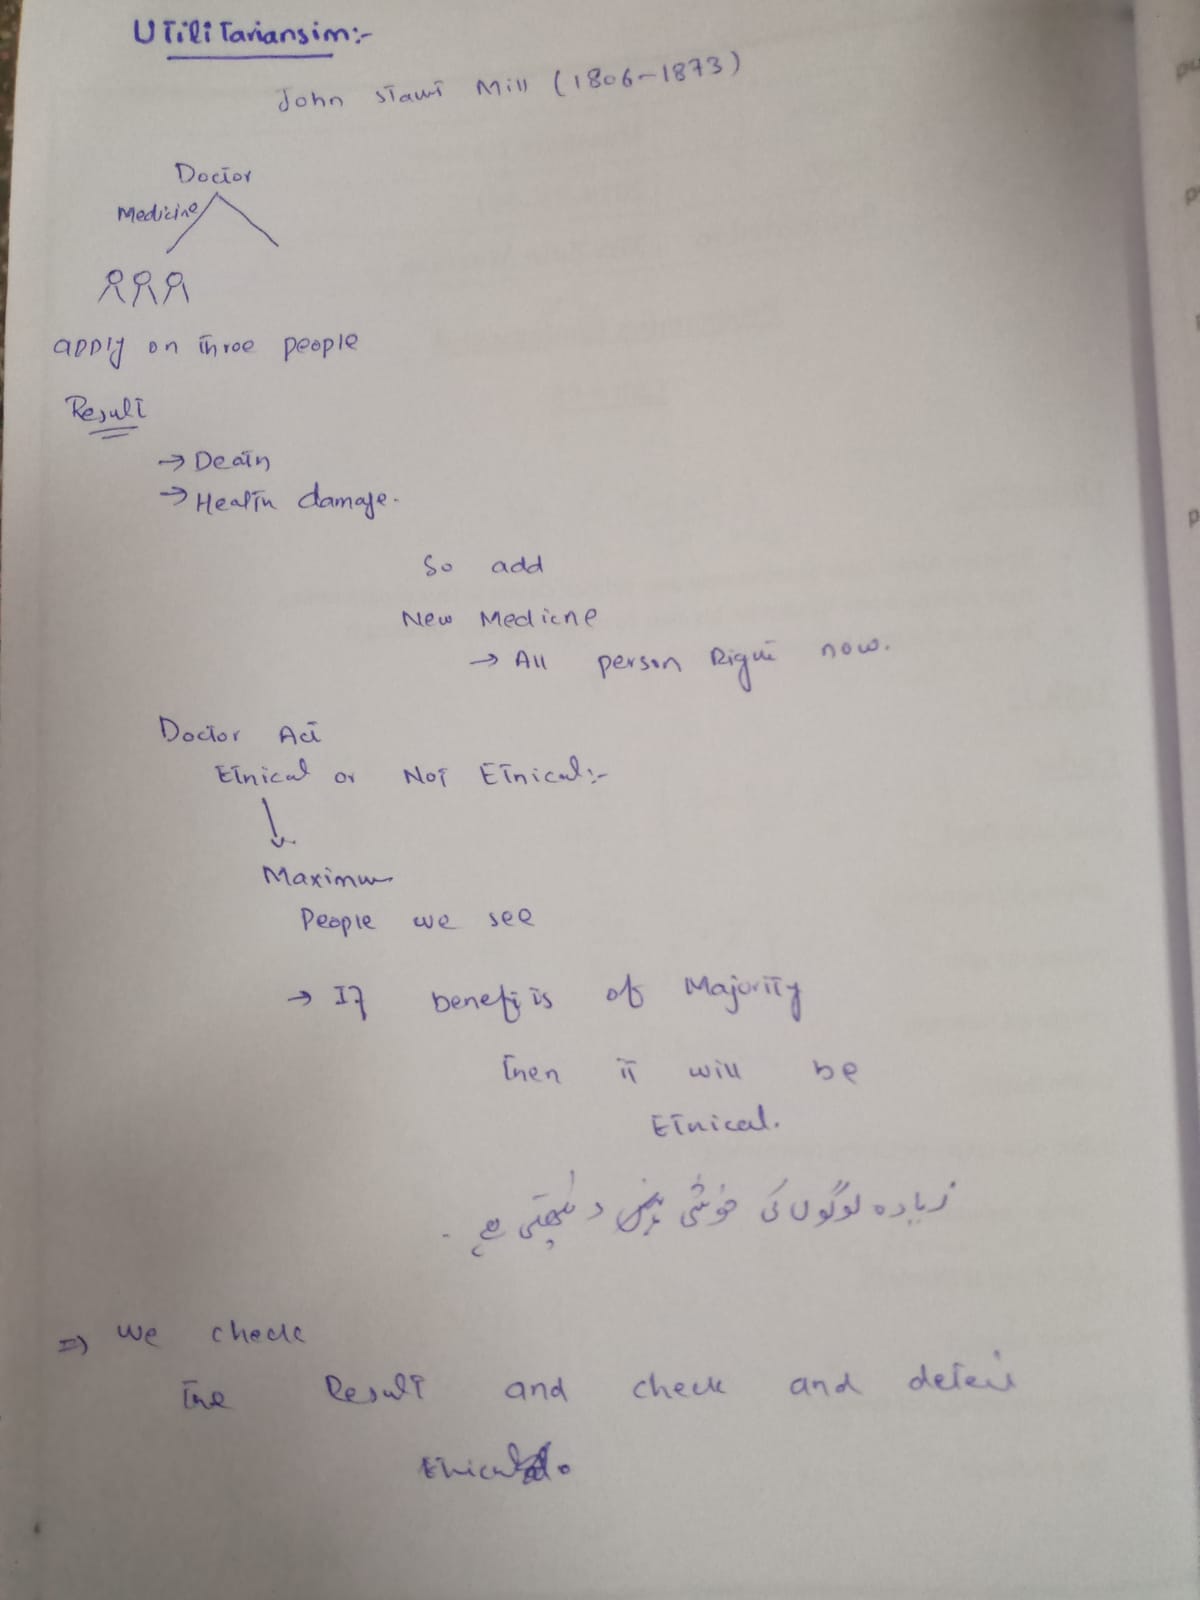 UTiliTariansim:-
John Stawt Mill (1806-1873)
Doctor
Medicine
apply on three people
Result
→ Death
→ Health damage.
So add
New Medicne
→ All person Right now.
Doctor Act
Ethical or Not Ethical:-
Maximum
People we see
→ If benefits of Majority
then it will be
Ethical.
زیادہ لوگوں کی خوشی دیکھتی ہے ۔
⇒ we check
the Result and check and